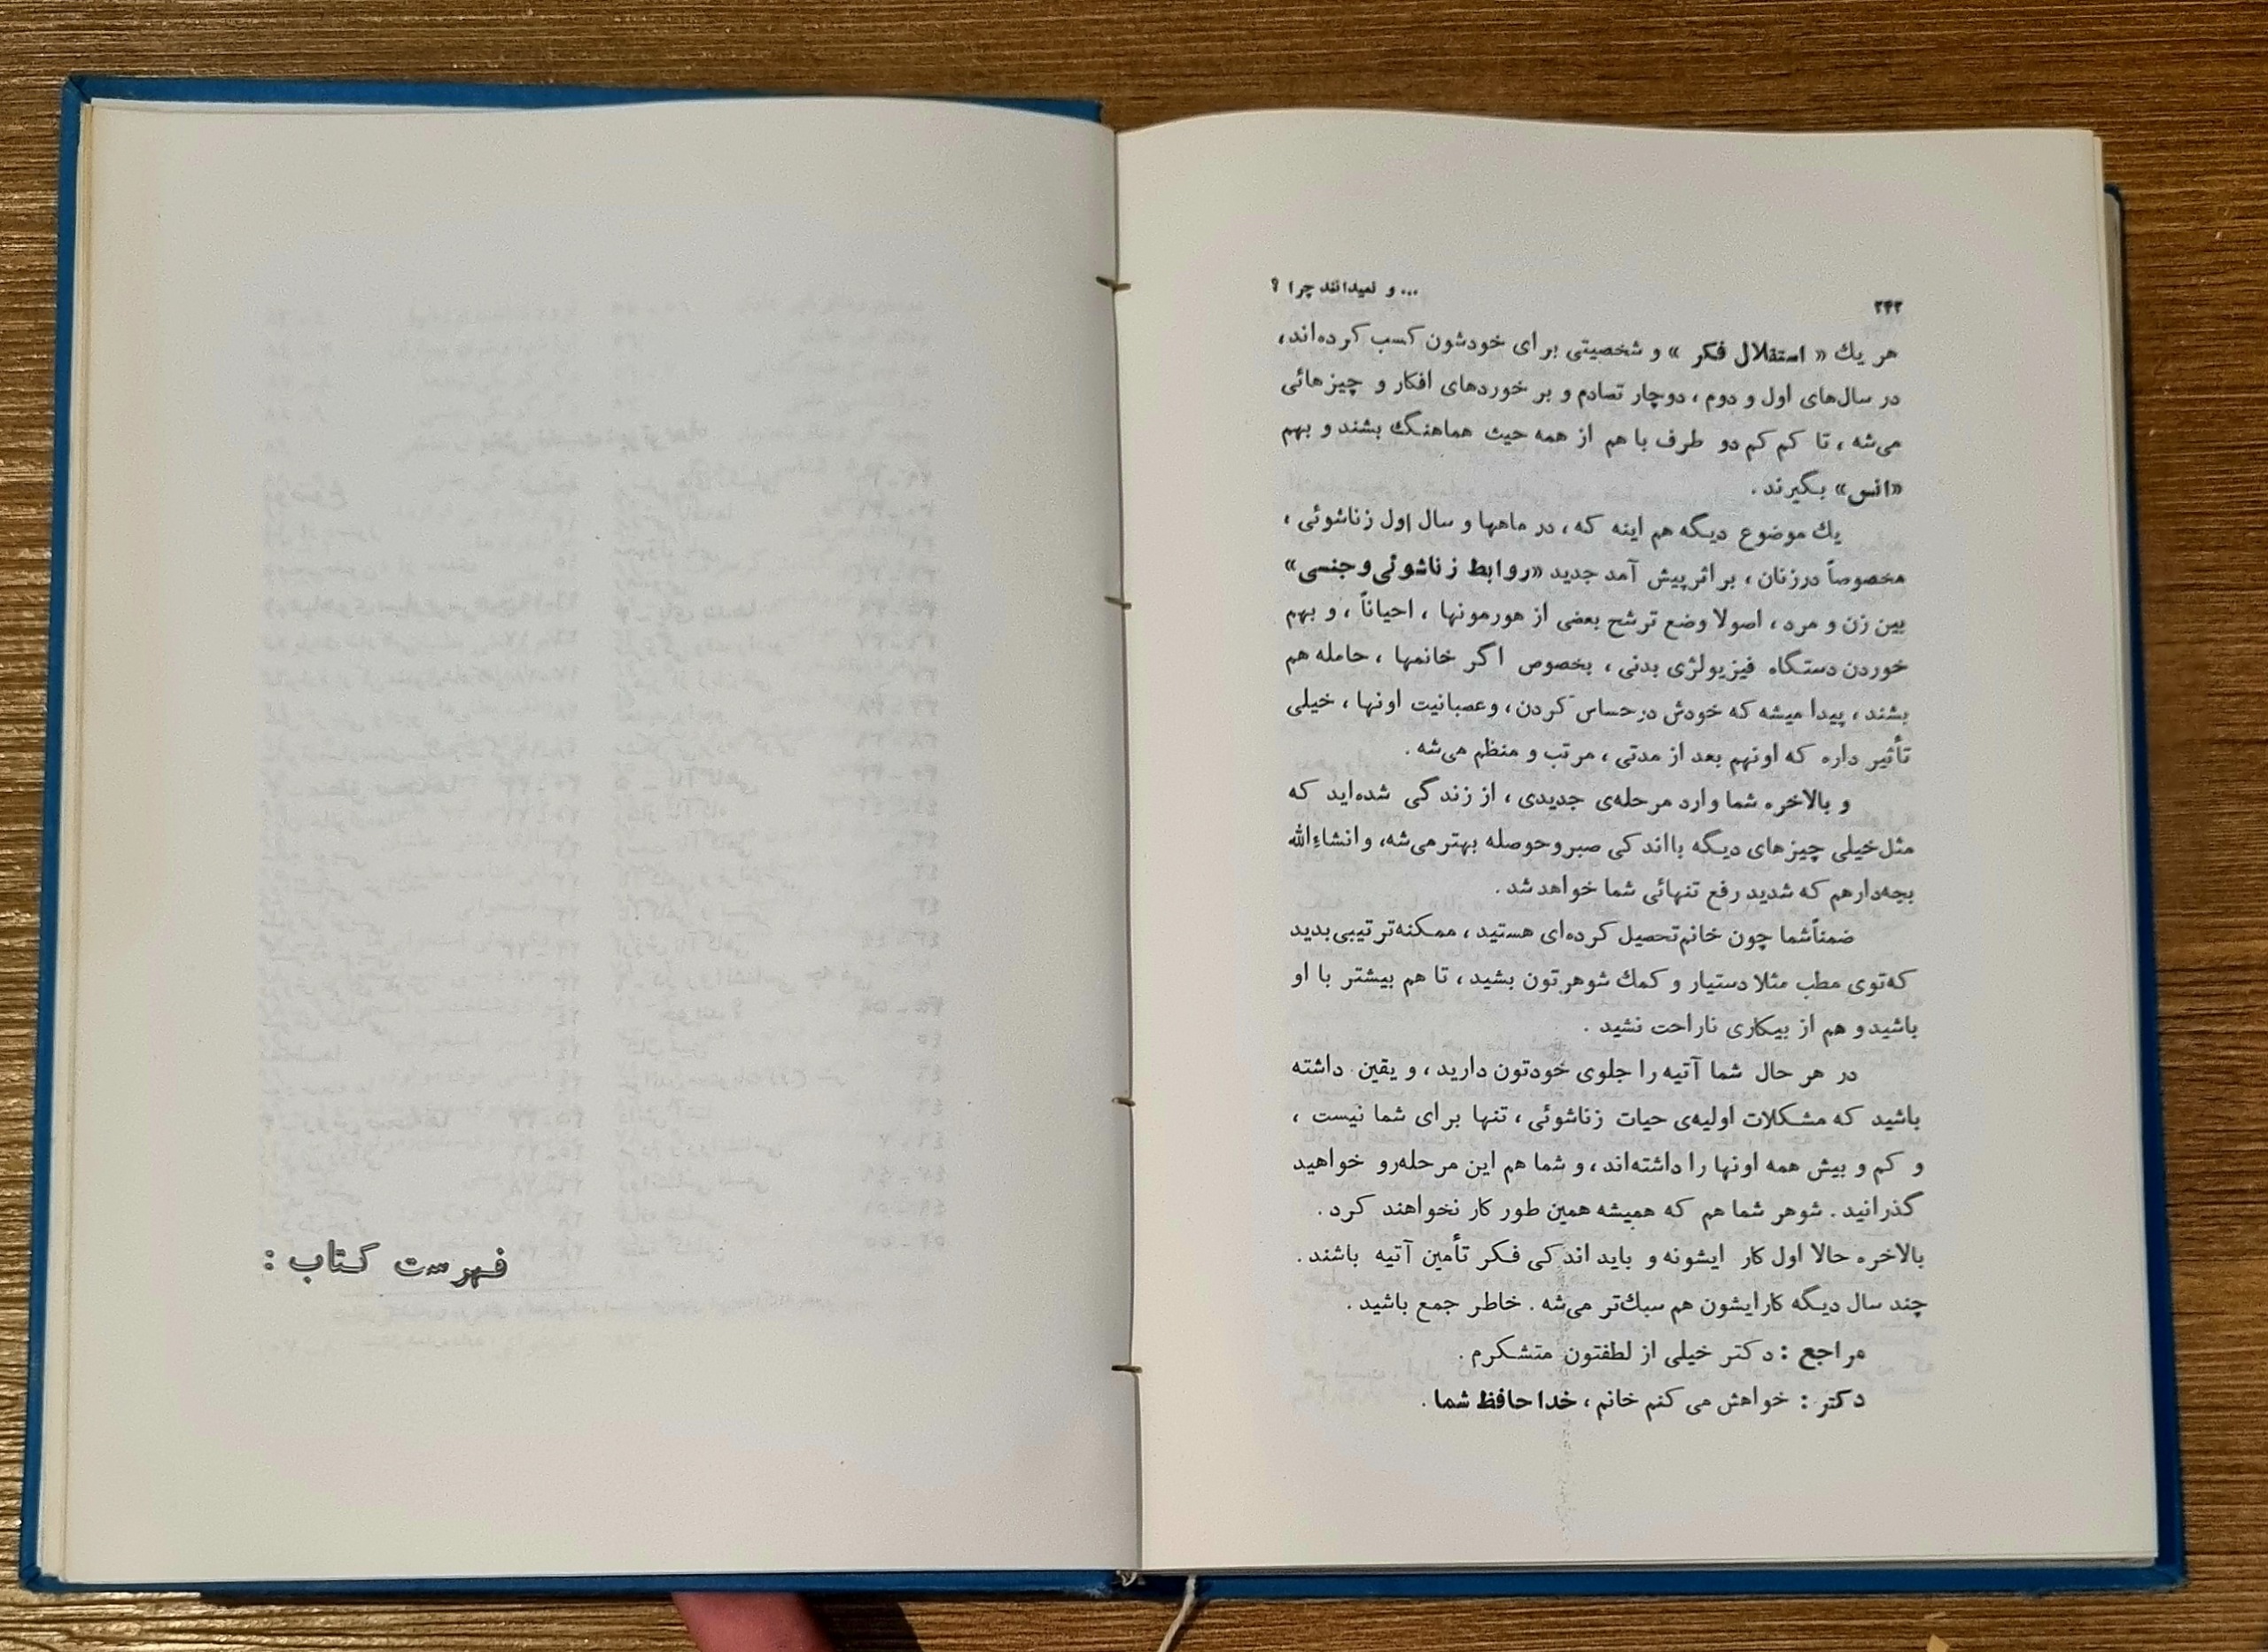 ۲۴۲
... و نمیدانند چرا ؟
هر یك « استقلال فکر » و شخصیتی برای خودشون کسب کرده‌اند،
در سال‌های اول و دوم ، دوچار تصادم و بر خوردهای افکار و چیزهائی
می‌شه ، تا کم کم دو طرف با هم از همه حیث هماهنگ بشند و بهم
«انس» بگیرند .
یك موضوع دیگه هم اینه که ، در ماهها و سال اول زناشوئی ،
مخصوصاً درزنان ، بر اثر پیش آمد جدید «روابط زناشوئی و جنسی»
بین زن و مرد ، اصولا وضع ترشح بعضی از هورمونها ، احیاناً ، و بهم
خوردن دستگاه فیزیولژی بدنی ، بخصوص اگر خانمها ، حامله هم
بشند ، پیدا میشه که خودش در حساس کردن، و عصبانیت اونها ، خیلی
تأثیر داره که اونهم بعد از مدتی ، مرتب و منظم می‌شه .
و بالاخره شما وارد مرحله‌ی جدیدی ، از زندگی شده‌اید که
مثل خیلی چیزهای دیگه بااندکی صبر و حوصله بهتر می‌شه، و انشاءالله
بچه‌دارهم که شدید رفع تنهائی شما خواهد شد .
ضمناً شما چون خانم تحصیل کرده‌ای هستید ، ممکنه ترتیبی بدید
که توی مطب مثلا دستیار و کمك شوهرتون بشید ، تا هم بیشتر با او
باشید و هم از بیکاری ناراحت نشید .
در هر حال شما آتیه را جلوی خودتون دارید ، و یقین داشته
باشید که مشکلات اولیه‌ی حیات زناشوئی ، تنها برای شما نیست ،
و کم و بیش همه اونها را داشته‌اند ، و شما هم این مرحله‌رو خواهید
گذرانید . شوهر شما هم که همیشه همین طور کار نخواهند کرد .
بالاخره حالا اول کار ایشونه و باید اندکی فکر تأمین آتیه باشند .
چند سال دیگه کارایشون هم سبك‌تر می‌شه . خاطر جمع باشید .
مراجع : دکتر خیلی از لطفتون متشکرم .
دکتر : خواهش می کنم خانم ، خدا حافظ شما .
فهرست کتاب :